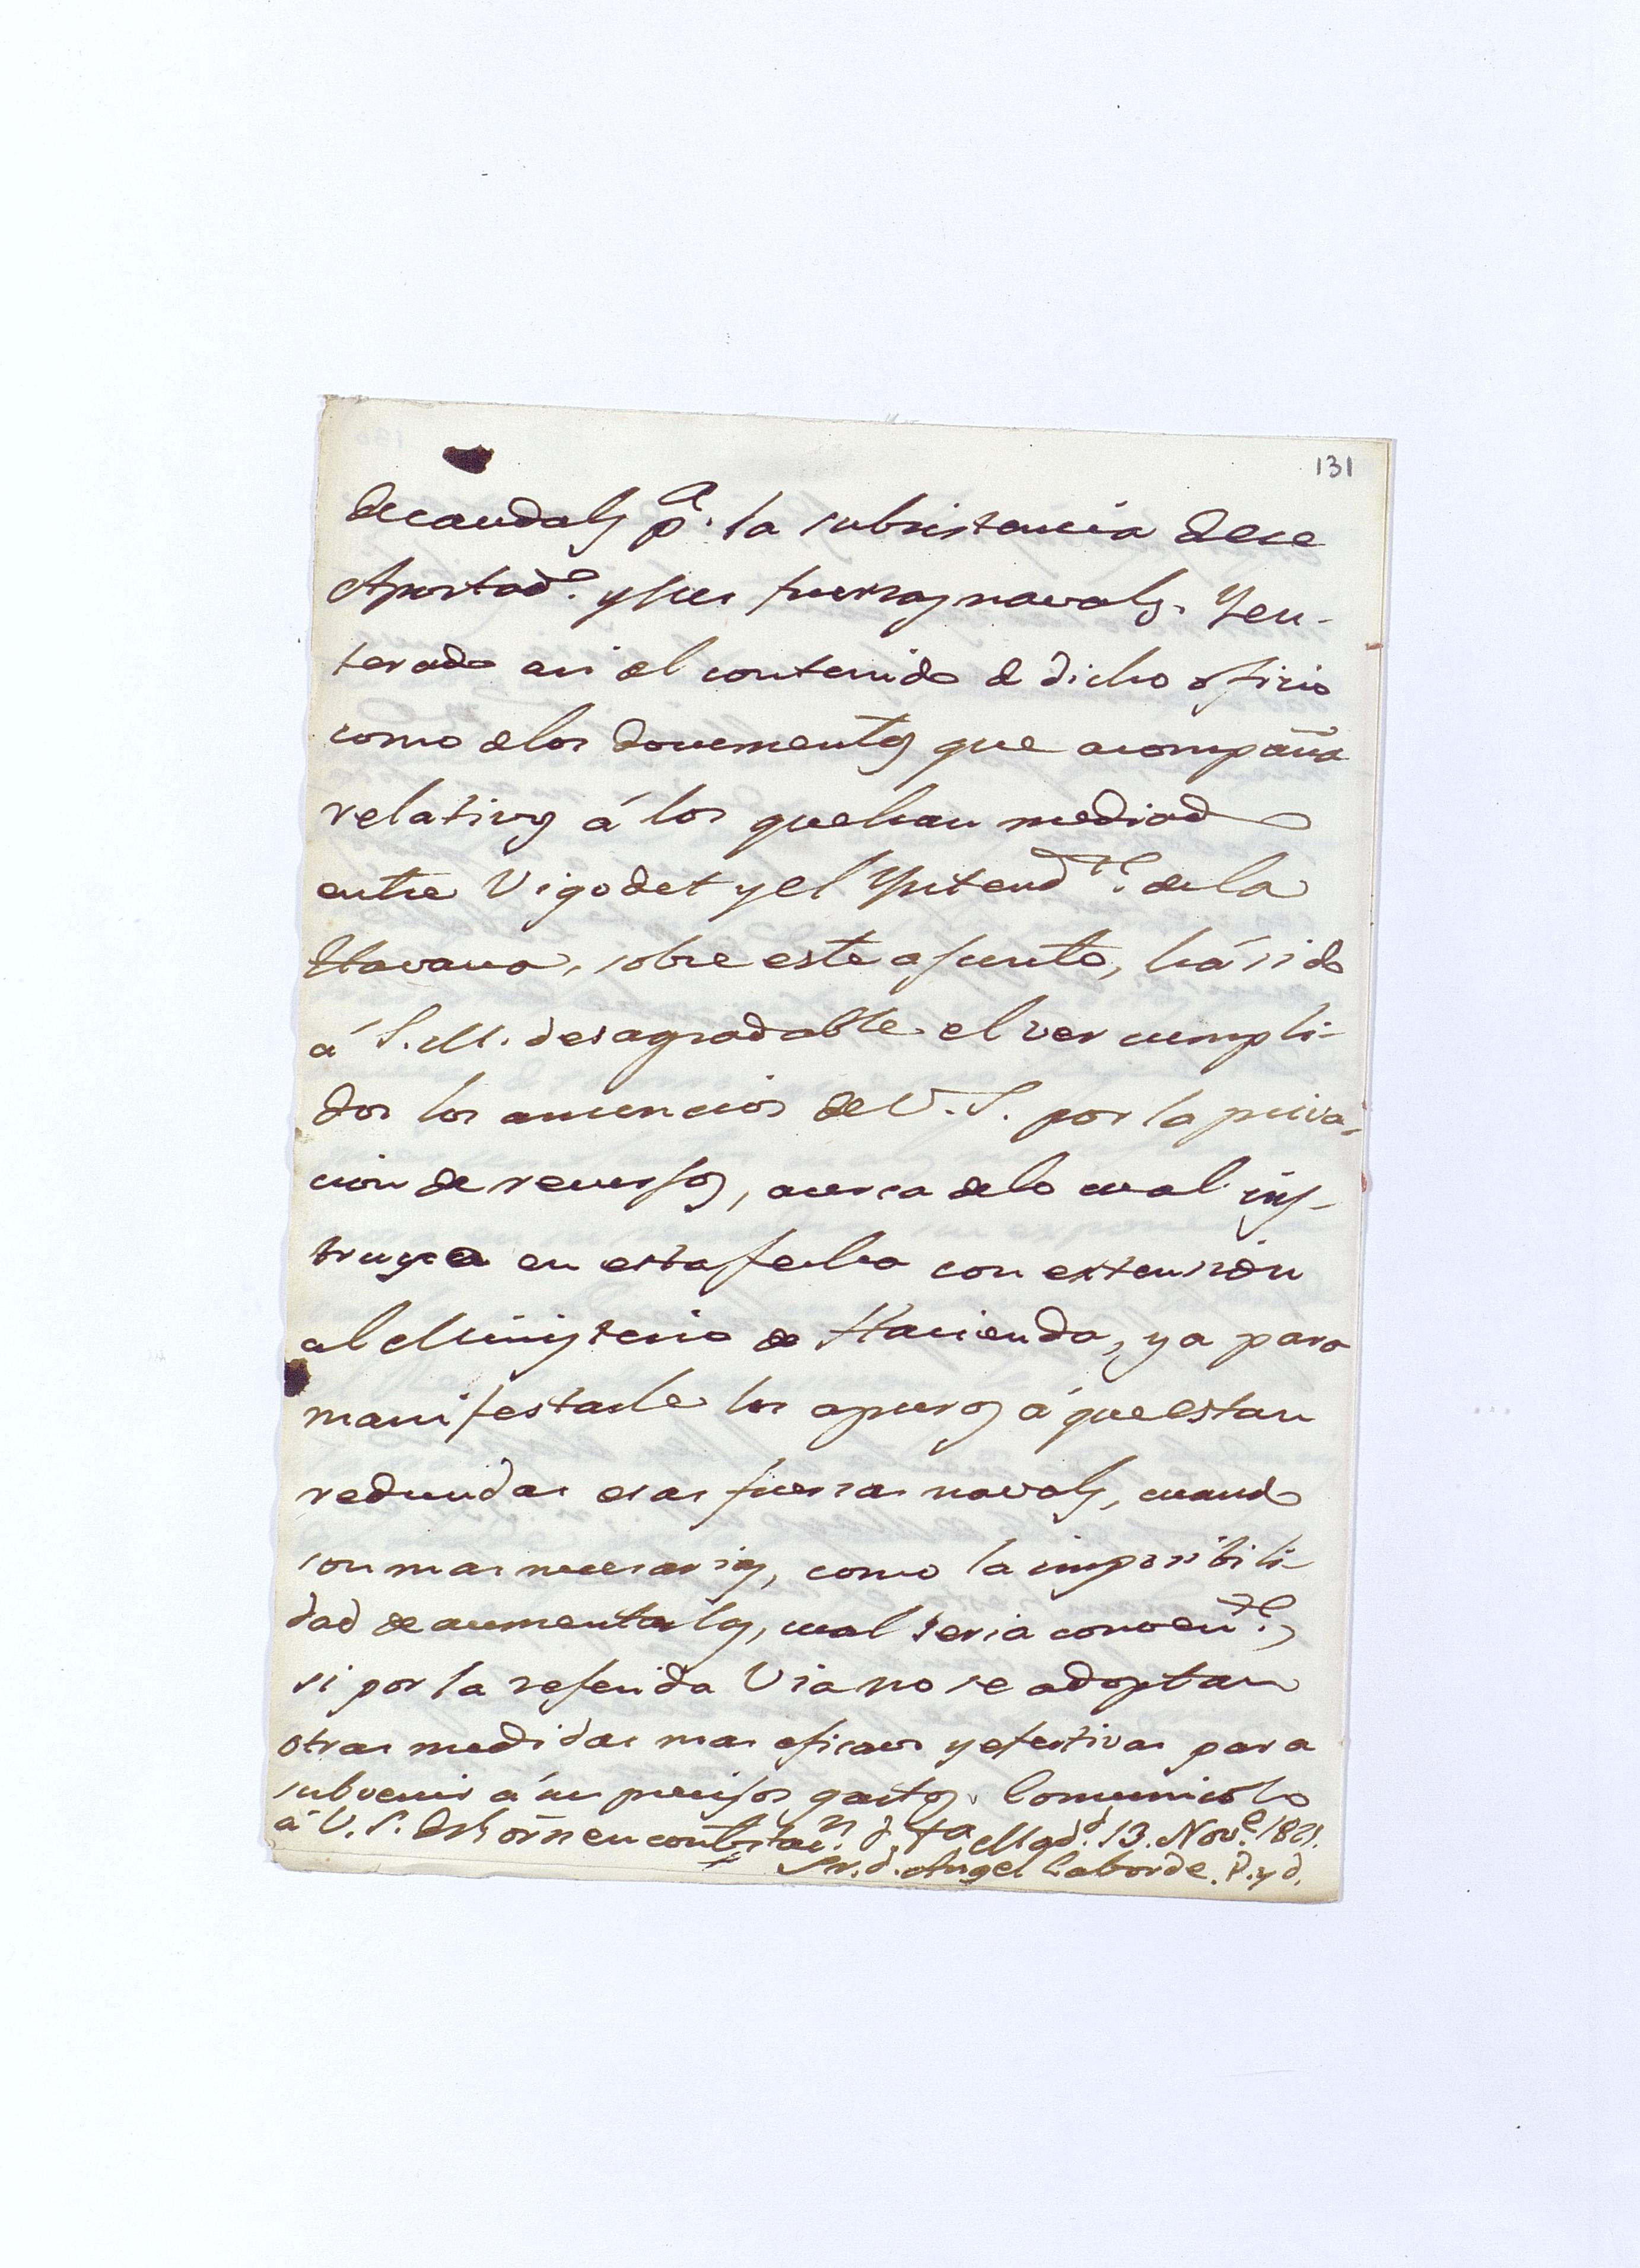 131
de caudales p.ª la subsistencia de ese
Apostad.º y sus fuerzas navales. Y en-
terado asi del contenido de dicho oficio
como de los documentos que acompaña
relativos á los que han mediado
entre Vigodet y el Yntend.te de la
Havana, sobre este asunto, há sido
á S. M. desagradable el ver cumpli-
dos los anuncios de V. S. por la priva-
cion de recursos, acerca de lo cual ins-
truyo en esta fecha con extension
al Ministerio de Hacienda, ya para
manifestarle los apuros á que estan
reducidas esas fuerzas navales, cuando
son mas necesarias, como la imposibili-
dad de aumentarlas, cual seria conven.te,
si por la referida Via no se adoptan
otras medidas mas eficaces y efectivas para
subvenir á sus precisos gastos. Comunicolo
á V. S. de Rl orñ en contestac.n d.ª Mad.d 13. Nov.e 1821.
Sr. d. Angel Laborde. P. y d.